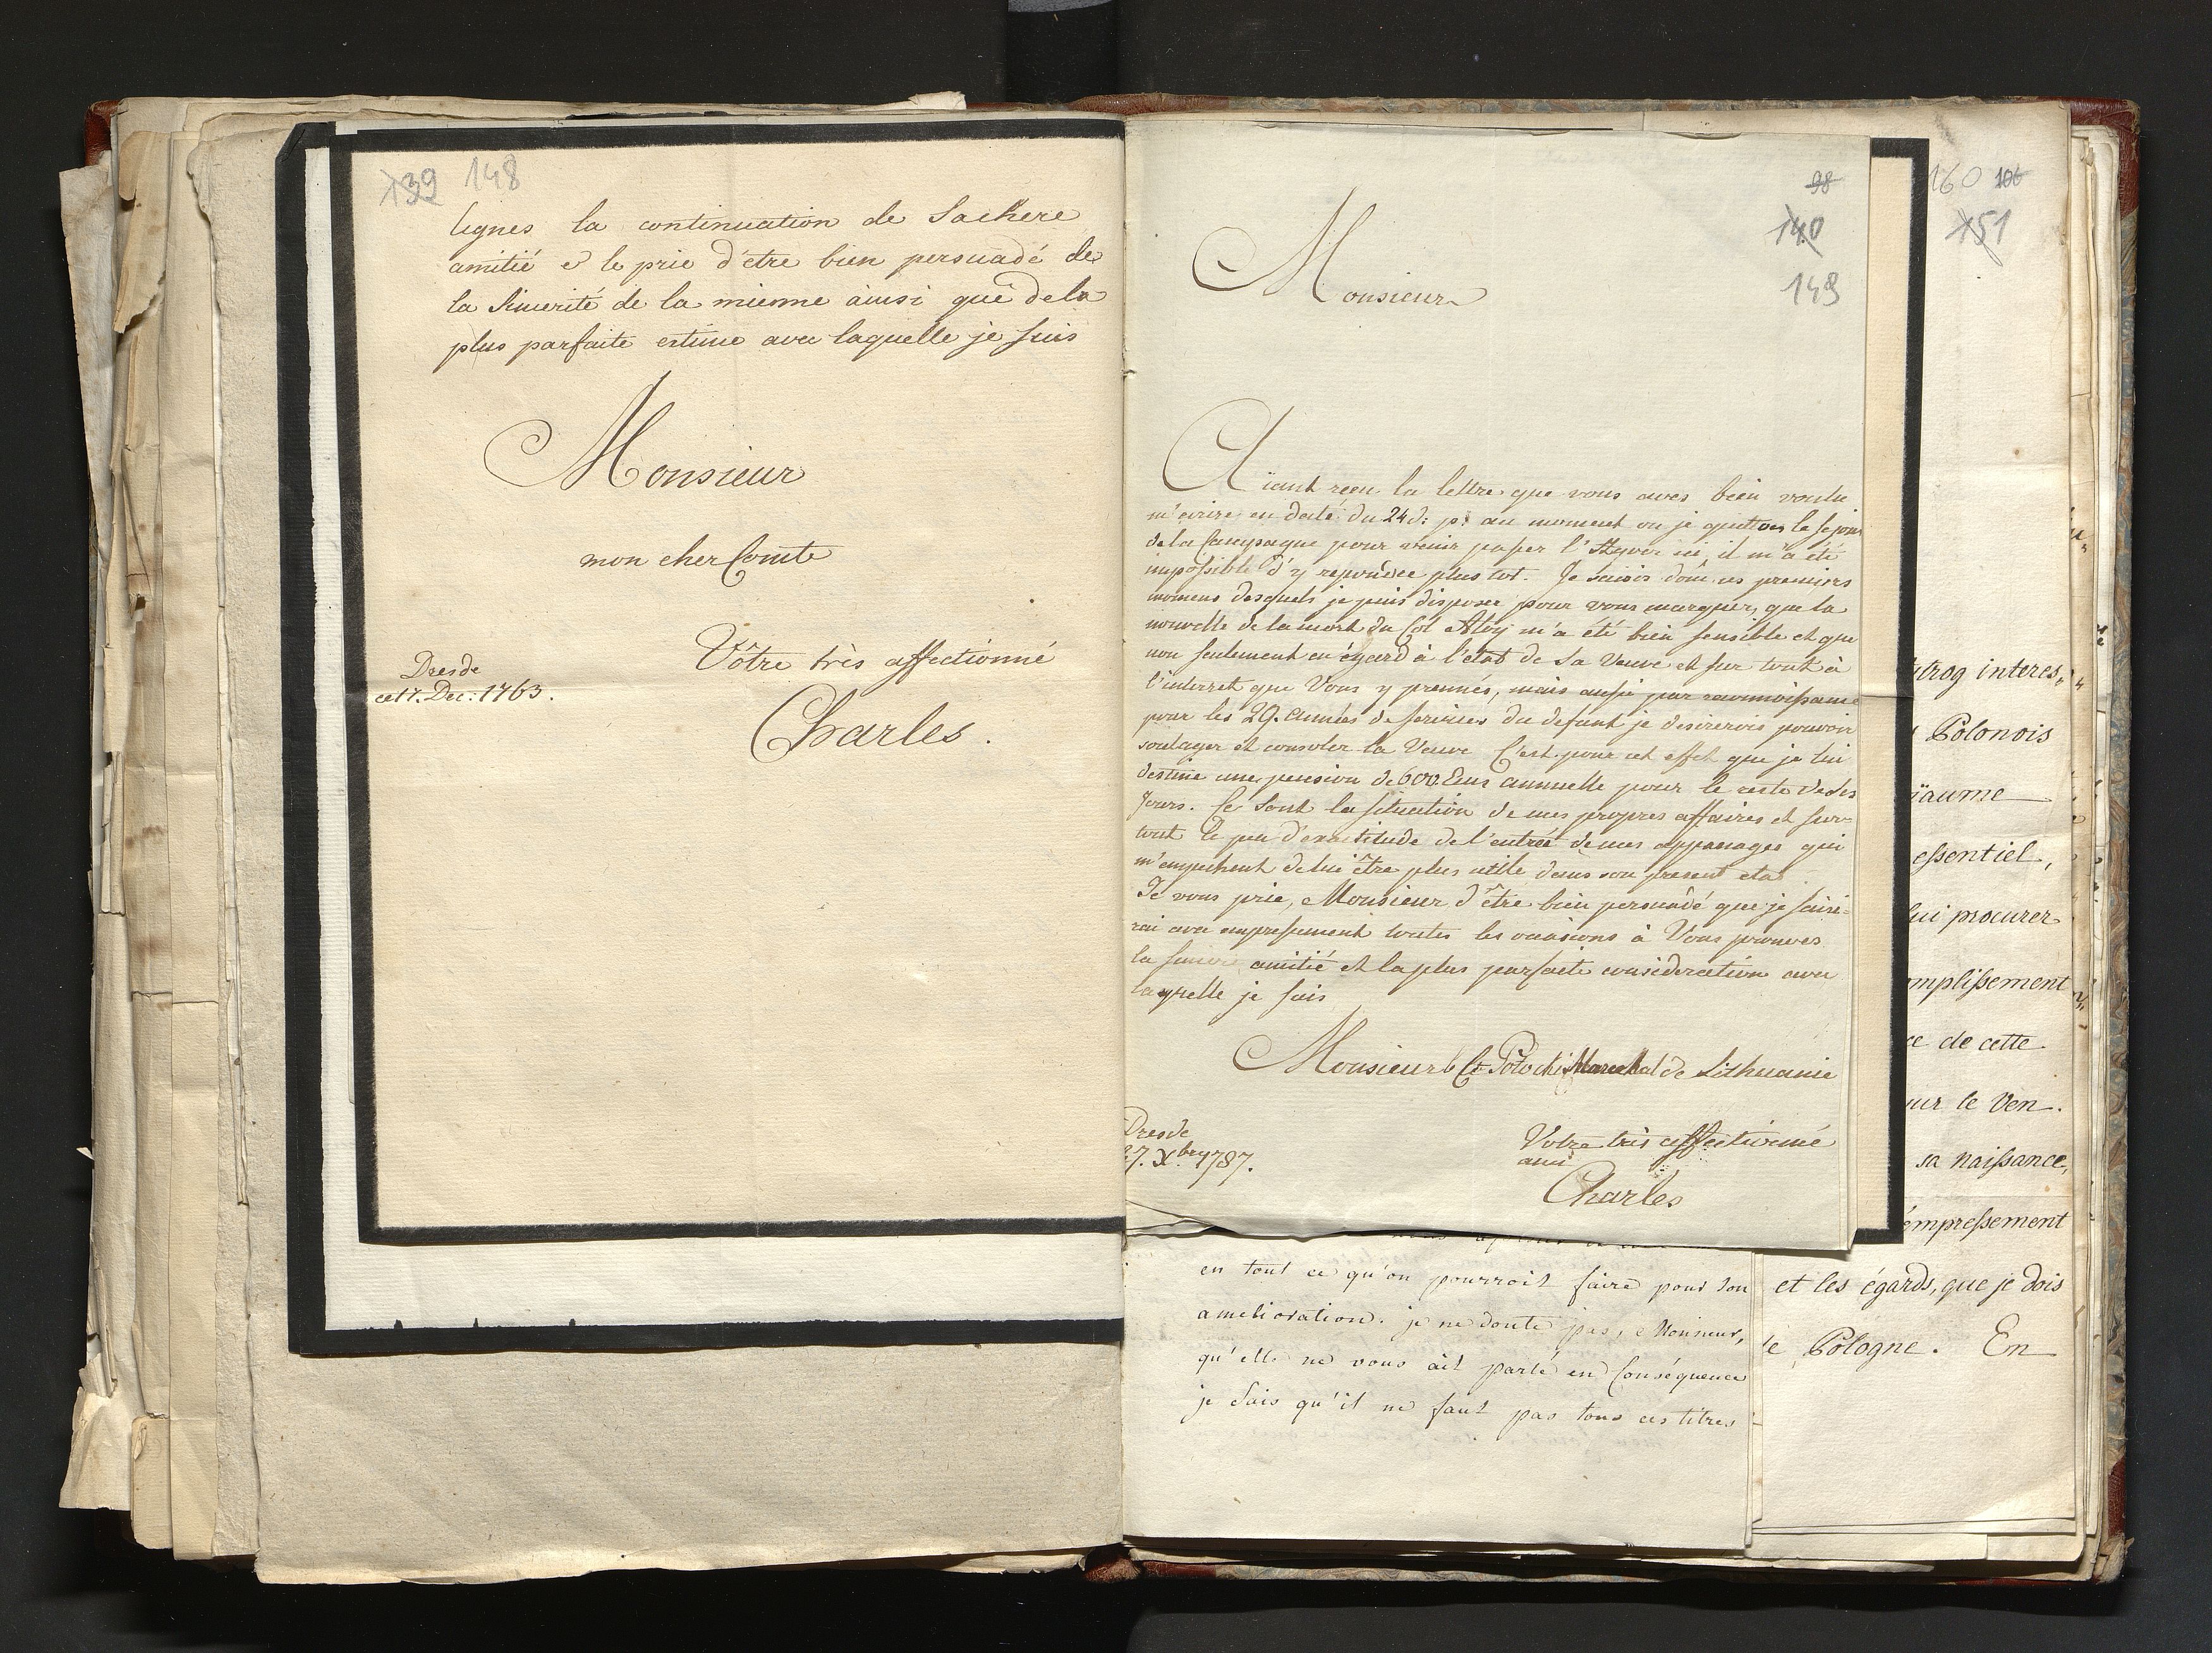 139 148
lignes la continuation de Sachere
amitié & le prie d'étre bien persuadé de
la Sincerité de la mienne àinsi que dela
plus parfaite estime avec laquelle je suis
Monsieur
mon cher Comte
Vôtre très affectionné
Dresde
ce 17. Dec: 1763.
Charles.
98
140
149
Monsieur
Aïant reçu la lettre que vous aves bien voulu
m'ecrire en daté du 24 d: p: au moment ou je quittois le sejour
de la Campagne pour venir passer l'Hyver ici, il m'a été
impossible d'y repondre plus tot. Je saisis donc ces premiers
momens desquels je puis disposer pour vous marquer, que la
nouvelle de la mort du Col Aloy m'a été bien sensible et que
non seulement en égard à l'état de Sa Veuve et sur tout à
l'interret que Vous y prennés, mais aussi par reconnoissance
pour les 29. années de services du defunt je desirerois pouvoir
soulager et consoler la Veuve C'est pour cet effet que je lui
destine une pension de 600 Ecus annuelle pour le reste de ses
Jours. Ce sont la situation de mes propres affaires et sur-
tout le peu d'exactitude de l'entrée de mes appanages qui
m'empechent de lui être plus utile dans son present etat
Je vous prie, Monsieur d'être bien persuadé que je saisi-
rai avec empressement toutes les occasions à Vous prouver
la sincere amitié et la plus parfaite consideration avec
laquelle je suis
Monsieur le Ct Potocki Marechal de Lithuanie
Dresde
27. Xbry 1787.
Votre très affectionné
ami
Charles
en tout ce qu'on pourroit faire pour son
amelioration. je ne doute pas, Monsieur,
qu'elle ne vous ait parlé en Conséquence
je sais qu'il ne faut pas tous ces titres
160 106
151
strog interes,
Polonois
ïaume
essentiel,
lui procurer
mplissement
ce de cette
ur le Ven.
sa naissance,
empressement
et les égards, que je dois
le Pologne. En